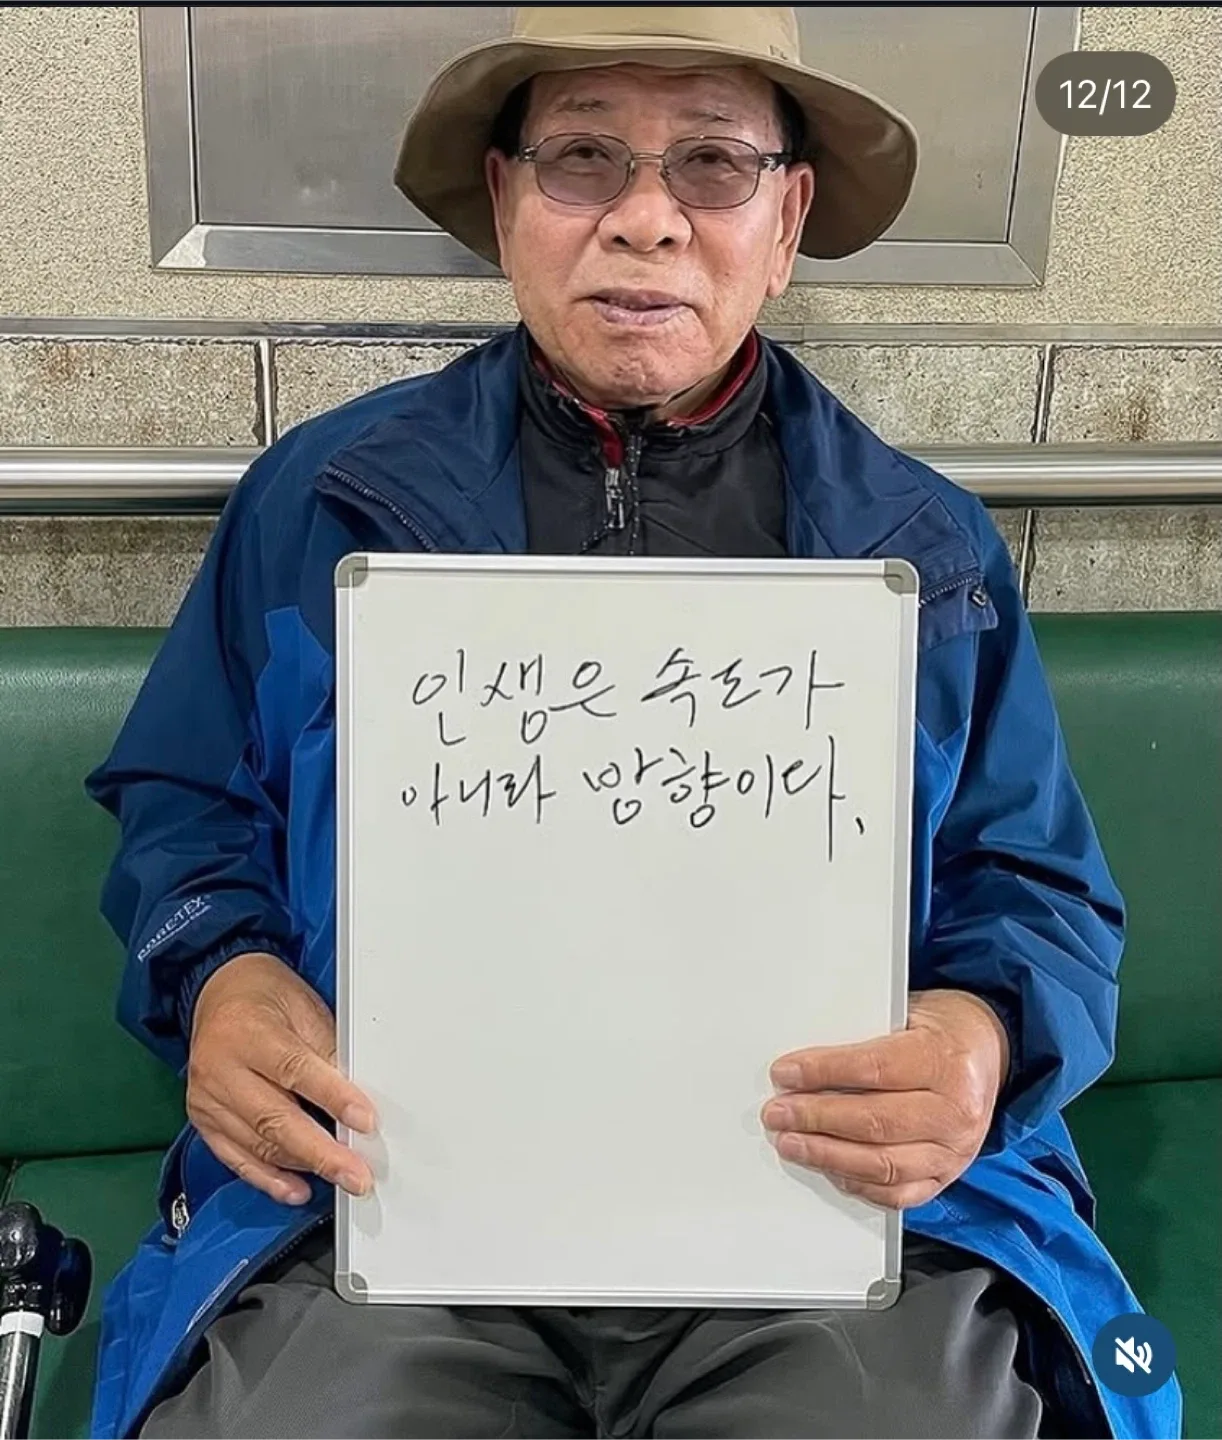 12/12
인생은 속도가
아니라 방향이다.
GORE-TEX